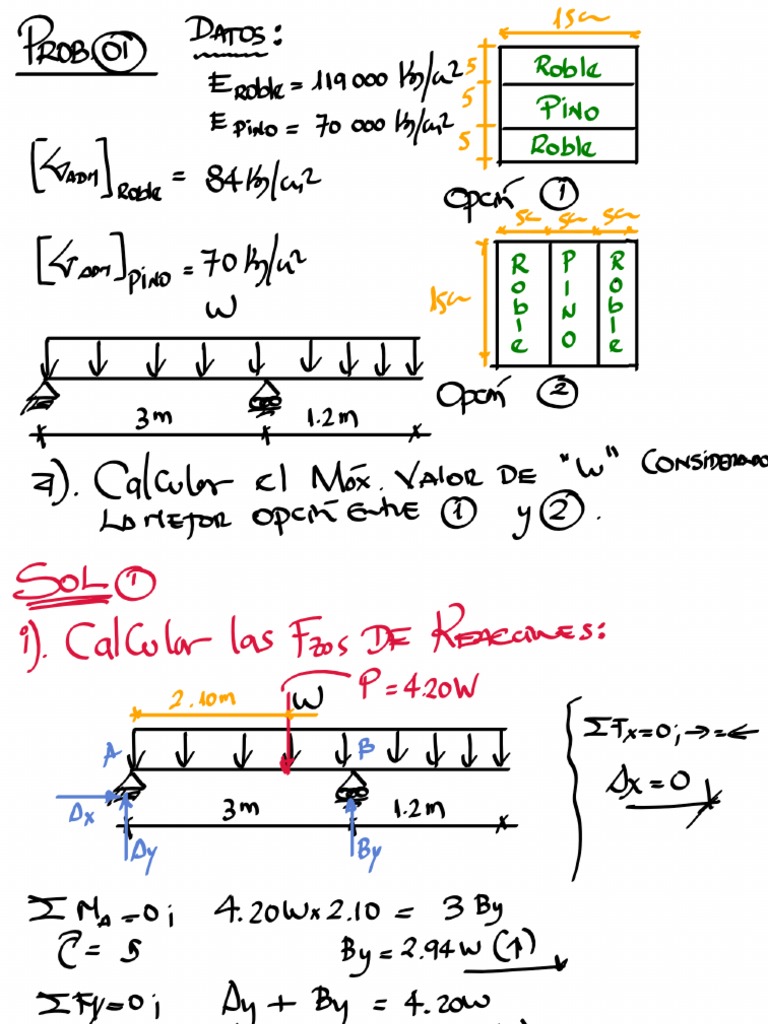 PROB. 01
DATOS:
E Roble = 119 000 Kg/cm²
E PINO = 70 000 Kg/cm²
[σADM]Roble = 84 Kg/cm²
[σADM]PINO = 70 Kg/cm²
15cm
5
Roble
5
PINO
5
Roble
Opción 1
5cm 5cm 5cm
15cm
Roble
PINO
Roble
Opción 2
W
3m
1.2m
a). Calcular el Máx. VALOR DE "W" CONSIDERANDO
LA MEJOR OPCIÓN ENTRE 1 y 2.
SOL 1
i). Calcular las Fzas DE REACCIONES:
2.10m
W
P = 4.20W
A
B
Ax
Ay
By
3m
1.2m
ΣFx=0; →=←
Ax = 0
ΣMA=0; 4.20W x 2.10 = 3 By
↻ = ↺
By = 2.94W (↑)
ΣFy=0; Ay + By = 4.20W